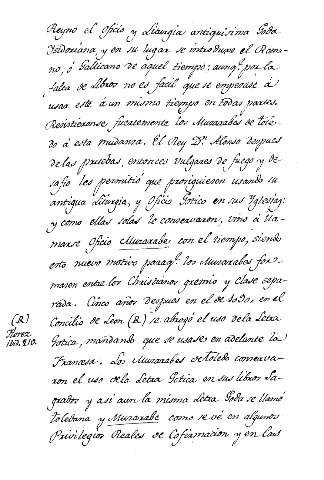 Reyno el Oficio y Liturgia antiquisima Goda
Isidoriana, y en su lugar se introduxo el Roma-
no, ó Gallicano de aquel tiempo: aunq.e por la
falta de Libros no es facil que se empezase á
usar este á un mismo tiempo en todas partes.
Resistieronse fuertemente los Muzarabes de tole-
do á esta mudanza. El Rey D.n Alonso despues
de las pruebas, entonces vulgares de fuego y de-
safio les permitió que prosiguiesen usando su
antigua Liturgia, y Oficio Gotico en sus Yglesias:
y como ellas solas lo conservaron, vino á lla-
marse Oficio Muzarabe con el tiempo, siendo
esto nuevo motivo paraq.e los Muzarabes for-
masen entre los Christianos gremio y clase sepa-
rada. Cinco años despues en el de 1090, en el
Concilio de Leon (R) se abrogó el uso de la Letra
Gotica, mandando que se usase en adelante la
Francesa. Los Muzarabes de toledo conserva-
ron el uso de la Letra Gotica en sus libros Sa-
grados y asi aun la misma Letra Goda se llamó
toledana y Muzarabe como se vé en algunos
Privilegios Reales de Cofirmacion y en las
(R)
Florez